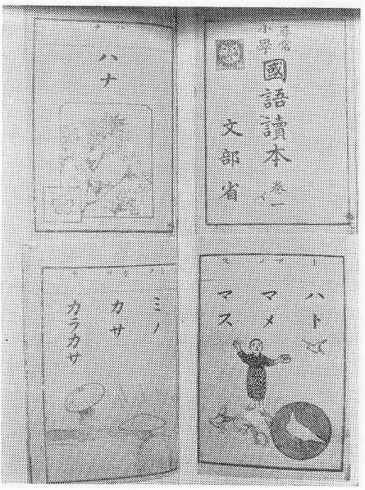 尋常
小學
國語讀本 卷一
文部省
ハナ
ハト
マメ
マス
ミノ
カサ
カラカサ